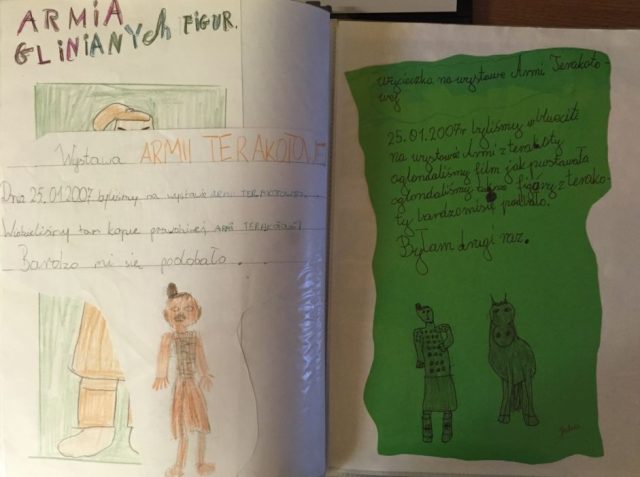 ARMIA
GLINIANYCH FIGUR.
Wystawa ARMII TERAKOTOWEJ
Dnia 25.01.2007 byliśmy na wystawie ARMII TERAKTOWEJ.
Widzieliśmy tam kopie prawdziwej ARMI TERAKOTOWEJ
Bardzo mi się podobało.
Wycieczka na wystawe Armi Terakoto-
wej
25.01.2007r byliśmy w
na wystawie Armi z terakoty
oglondaliśmy film jak powstawała
oglondaliśmy figury z terako-
ty bardzomisię podobało.
Byłam drugi raz.